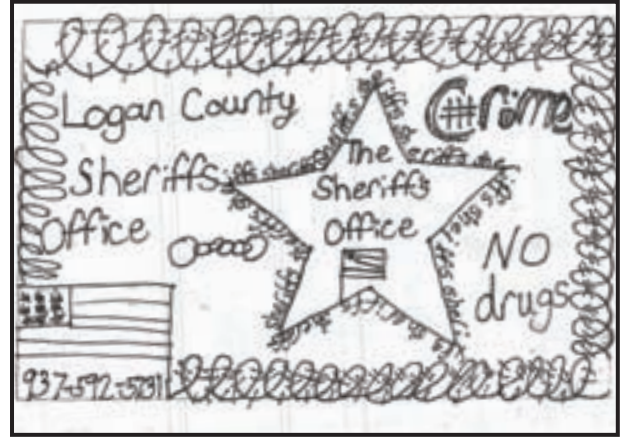 Logan County
Sheriffs
Office
The
Sheriff's
Office
Crime
NO
drugs
937-592-5731